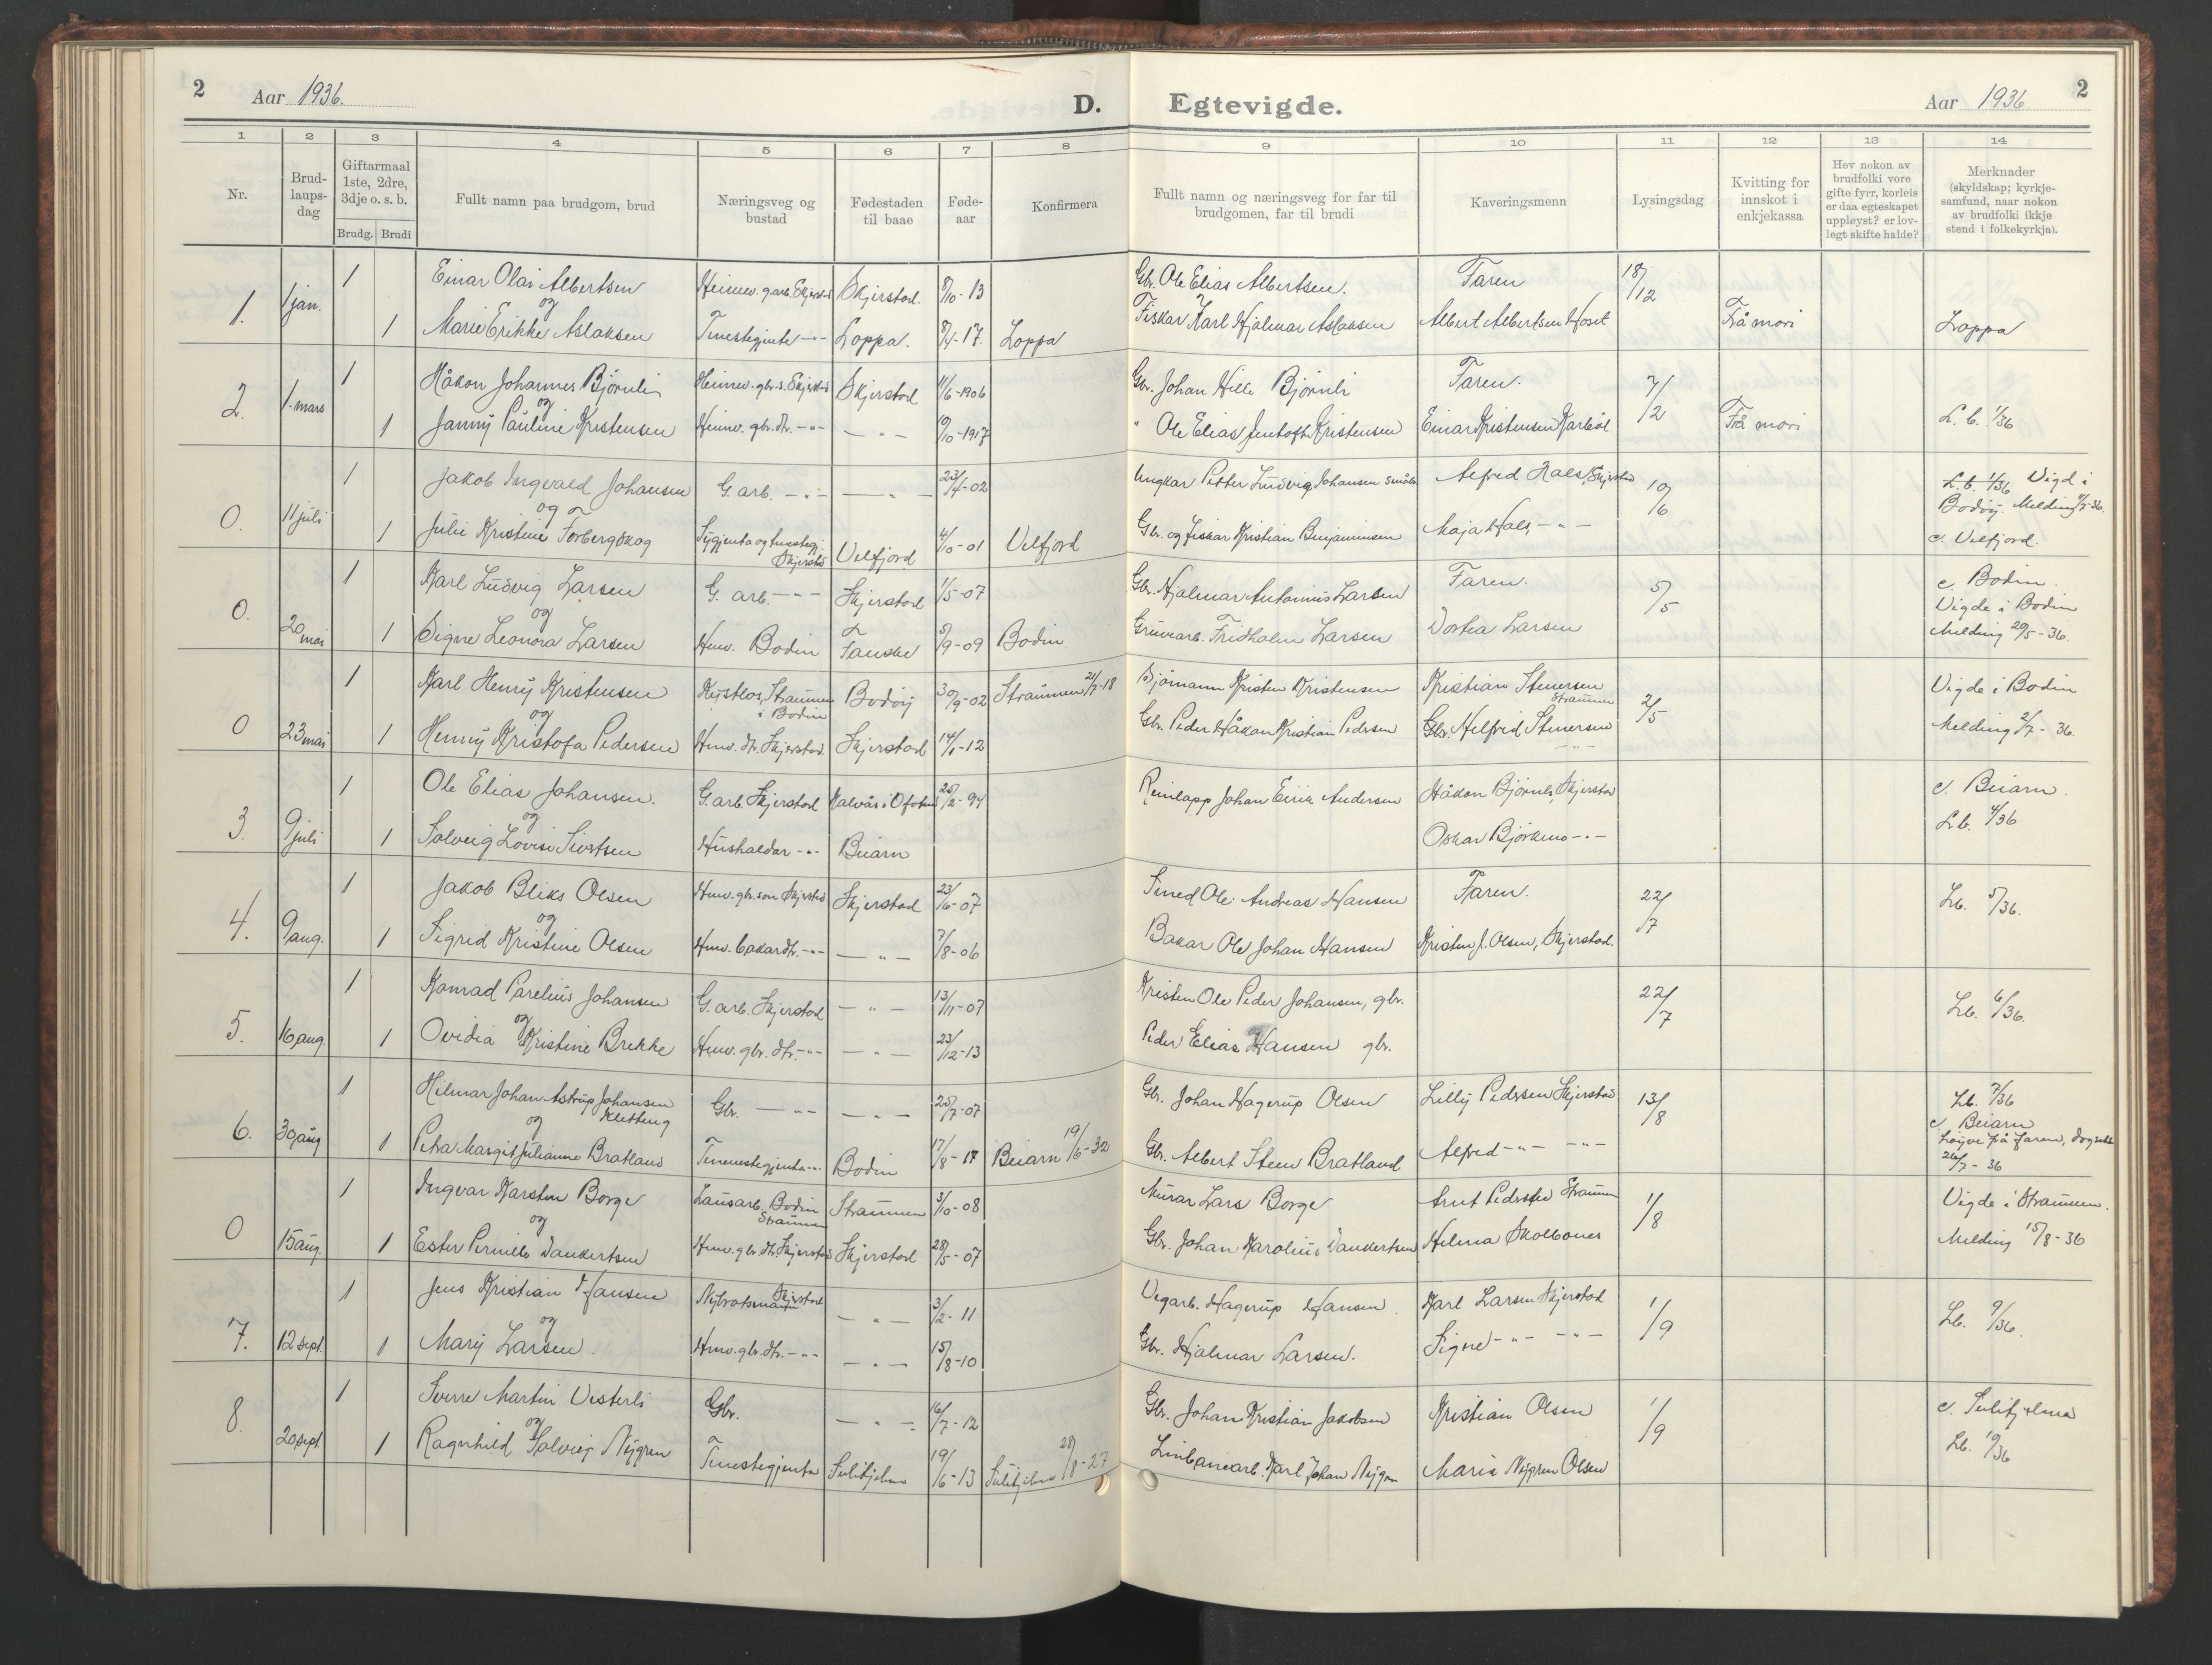 2
Aar 1936.
D. Egtevigde.
Aar 1936
2
1 2 3 4 5 6 7 8 9 10 11 12 13 14
Nr.
Brud-
laups-
dag
Giftarmaal
1ste, 2dre,
3dje o. s. b.
Brudg. Brudi
Fullt namn paa brudgom, brud
Næringsveg og
bustad
Fødestaden
til baae
Føde-
aar
Konfirmera
Fullt namn og næringsveg for far til
brudgomen, far til brudi
Kaveringsmenn
Lysingsdag
Kvitting for
innskot i
enkjekassa
Hev nokon av
brudfolki vore
gifte fyrr, korleis
er daa egteskapet
uppløyst? er lov-
legt skifte halde?
Merknader
(skyldskap; kyrkje-
samfund, naar nokon
av brudfolki ikkje
stend i folkekyrkja).
1. 1 jan.
1 Einar Olai Albertsen Heimev. g.arb. Skjerstad Skjerstad. 8/10-13 Gbr. Ole Elias Albertsen. Faren 18/12
og
1 Marie Erikke Aslaksen Tenestegjente -"- Loppa. 8/4-17. Loppa Fiskar Karl Hjalmar Aslaksen Albert Albertsen Hoset Frå mori Loppa
2. 1. mars
1 Håkon Johannes Bjørnli Heimev. gbr.s. Skjerstad Skjerstad 11/6-1906 Gbr. Johan Hille Bjørnli Faren. 7/2
og
1 Janny Pauline Kristensen Heimv. gbr. dtr. -"- -"- 10/10-1917 " Ole Elias Jentoft Kristensen Einar Kristensen Karbøl Frå mori L.b. 1/36
0. 11 juli
1 Jakob Ingvald Johansen G. arb. -"- -"- 23/4-02 Ungkar Petter Ludvig Johansen småbr. Alfred Hals, Skjerstad 10/6 L.b. 1/36 Vigd i
og Bodøy Melding 11/7-36.
1 Julie Kristine Forbergskog Sygjenta og tenestegj. Skjerstad Velfjord 4/10-01 Velfjord Gbr. og fiskar Kristian Benjaminsen Maja Hals -"- c. Velfjord.
0. 20 mai
1 Karl Ludvig Larsen G. arb. -"- Skjerstad 1/5-07 Gbr. Hjalmar Antonius Larsen Faren. 5/5 c. Bodin.
og Vigde i Bodin
1 Signe Leonora Larsen Hmv. Bodin Fauske 5/9-09 Bodin Gruvearb. Fridholm Larsen Dortea Larsen Melding 20/5-36.
0 23 mai
1 Karl Henry Kristensen Straumen i Bodin Bodøy 30/9-02 Straumen 21/7-18 Sjømann Kristen Kristensen Kristian Stenersen Straumen 2/5 Vigde i Bodin
og
1 Henny Kristofa Pedersen Hmv. dt. Skjerstad. Skjerstad 14/1-12 Gbr. Peder Håkon Kristian Pedersen Gbr. Hilfrid Stenersen -"- Melding 2/7-36.
3. 9 juli
1 Ole Elias Johansen. G. arb. Skjerstad Kalvås i Ofoten 25/2-94 Reinlapp Johan Eirik Andersen Håkon Bjørnli, Skjerstad c. Beiarn.
og
1 Solveig Lovise Sivertsen Hushaldar -"- Beiarn Oskar Bjørkmo -"- Lb. 4/36
4. 9 aug.
1 Jakob Bliks Olsen Hmv. gbr. son Skjerstad Skjerstad 23/6-07 Smed Ole Andreas Hansen Faren. 22/7 Lb. 5/36.
og
1 Sigrid Kristine Olsen Hmv. bakardtr. -"- -"- 7/8-06 Bakar Ole Johan Hansen Kristen J. Olsen, Skjerstad.
5. 16 aug.
1 Konrad Parelius Johansen G. arb. Skjerstad -"- 13/11-07 Kristen Ole Peder Johansen, gbr. 22/7 Lb. 6/36.
og
1 Ovidia Kristine Brekke Hmv. gbr. dtr. -"- -"- 23/12-13 Peder Elias Hansen gbr.
6. 30 aug
1 Hilmar Johan Astrup Johansen Kletteng Gbr. -"- -"- 25/7-07 Gbr. Johan Hagerup Olsen Lilly Pedersen Skjerstad 13/8 Lb. 7/36
og c. Beiarn
1 Petra Margit Julianne Bratland Tenestegjenta -"- Bodin 17/8-18 Beiarn 19/6-32 Gbr. Albert Steen Bratland Alfred -"- -"- Løyve frå faren, dagsett
26/7-36
0 15 aug.
1 Ingvar Karsten Borge Lausarb. Bodin Straumen Straumen 3/10-08 Murar Lars Borge Arnt Pedersen Straumen 1/8 Vigde i Straumen.
og
1 Ester Pernille Dankertsen Hmv. gbr. dtr. Skjerstad Skjerstad 28/5-07 Gbr. Johan Karolius Dankertsen Helma Skolbones Melding 15/8-36
7. 12 sept.
1 Jens Kristian Hansen Nybrotsmann Skjerstad -"- 3/2-11 Vegarb. Hagerup Hansen Karl Larsen Skjerstad 1/9 Lb. 9/36.
og
1 Mary Larsen. Hmv. gbr. dtr. -"- -"- 15/8-10 Gbr. Hjalmar Larsen. Signe -"- -"-
8. 20 sept
1 Sverre Martin Vesterli Gbr. -"- 16/7-12 Gbr. Johan Kristian Jakobsen Kristian Olsen 1/9 c. Sulitjelma
og
1 Ragnhild Solveig Nygren Tenestegjenta Sulitjelma 19/6-13 Sulitjelma 28/8-27 Linbanearb. Karl Johan Nygren Maria Nygren Olsen Lb. 10/36